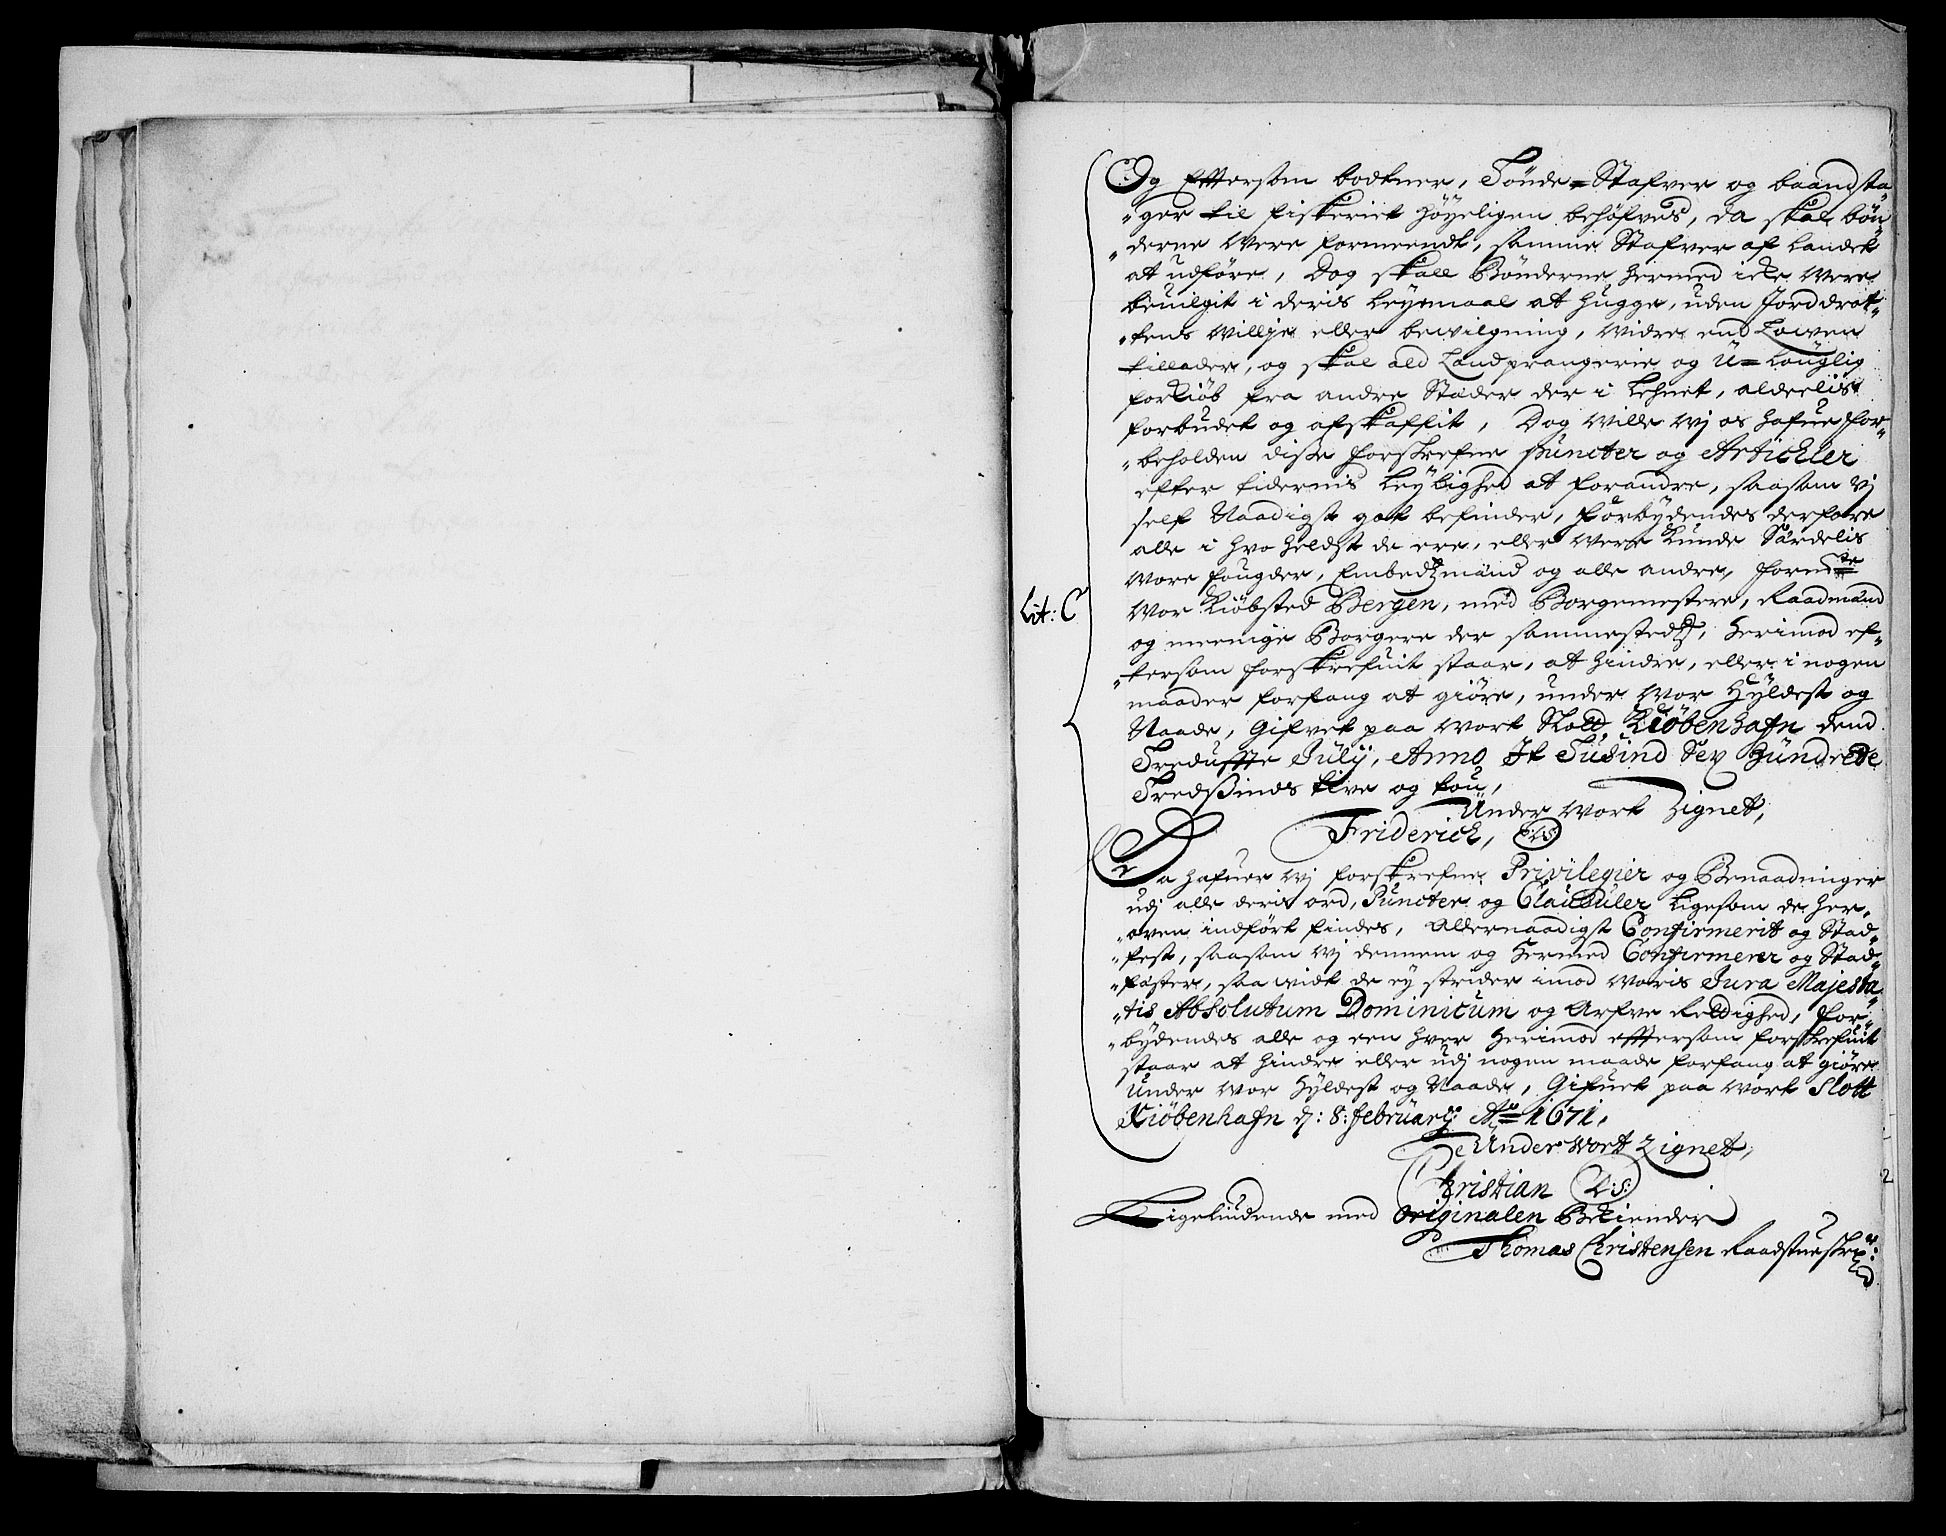 Og Effttersom bodkner, Tönde=Stafver og baandsta
"ger til fiskeriet höyeligen behöfves, da skal bön
"derne were formeendt, samme Stafver af landet
at udföre, Dog skall Bönderne hermed icke were
beuilgit i deris leyemaal at hugge, uden Jorddrot-
"tens willje eller bewilgning, widre end Lowen
tillader, og skal ald Landprangerie og U=louglig
forkiöb fra andre Stæder der i Lehnet, aldeelis
forbudet og afskaffit, Dog wille wj os hafue for-
"beholden disse forskrefne puncter og Artickler
efter tidernis leylighed at forandre, saasom vj
self Naadigst got befinder, forbydendes derfore
alle i hvo heldst de ere, eller were kunde Særdelis
wore fougder, Embedzmänd og alle andre, formte
Lit: C
wor kiöbsted Bergen, med Borgemestere, Raadmänd
og meenige Borgere der sammestedz, herimod ef-
"tersom forskrefuit staar, at hindre, eller i nogen
maader forfang at giöre, under wor Hyldest og
Naade, Gifvet paa wort Slott Kiöbenhafn dend
Treduffte Julij, Anno Et Tusind Sex Hundrede
Tredsinds tive og tou,
Under wort Zignet,
Friderich, L:S:
Da hafuer wj forskrefne Privilegier og Benaadninger
udj alle deris ord, Puncter og Clausuler ligesom de her-
"oven indfört findes, Allernaadigst Confirmerit og Stad-
"fest, saasom wj dennem og hermed Confirmerer og Stad-
"fäster, saa widt de ey strider imod woris Jura Majesta
"tis Absolutum Dominicum og Arfve Rettighed, for-
"bydendes alle og een hver herimod effttersom forskrefuit
staar at hindre eller udj nogen maade forfang at giöre
under wor Hyldest og Naade, Gifuet paa wort Slott
Kiöbenhafn d: 8: februarij Ao 1671.
Under wort Zignet,
Christian L:S:
2
Ligelindende med Originalen Bekiender
Thomas Christensen Raadstueskr: